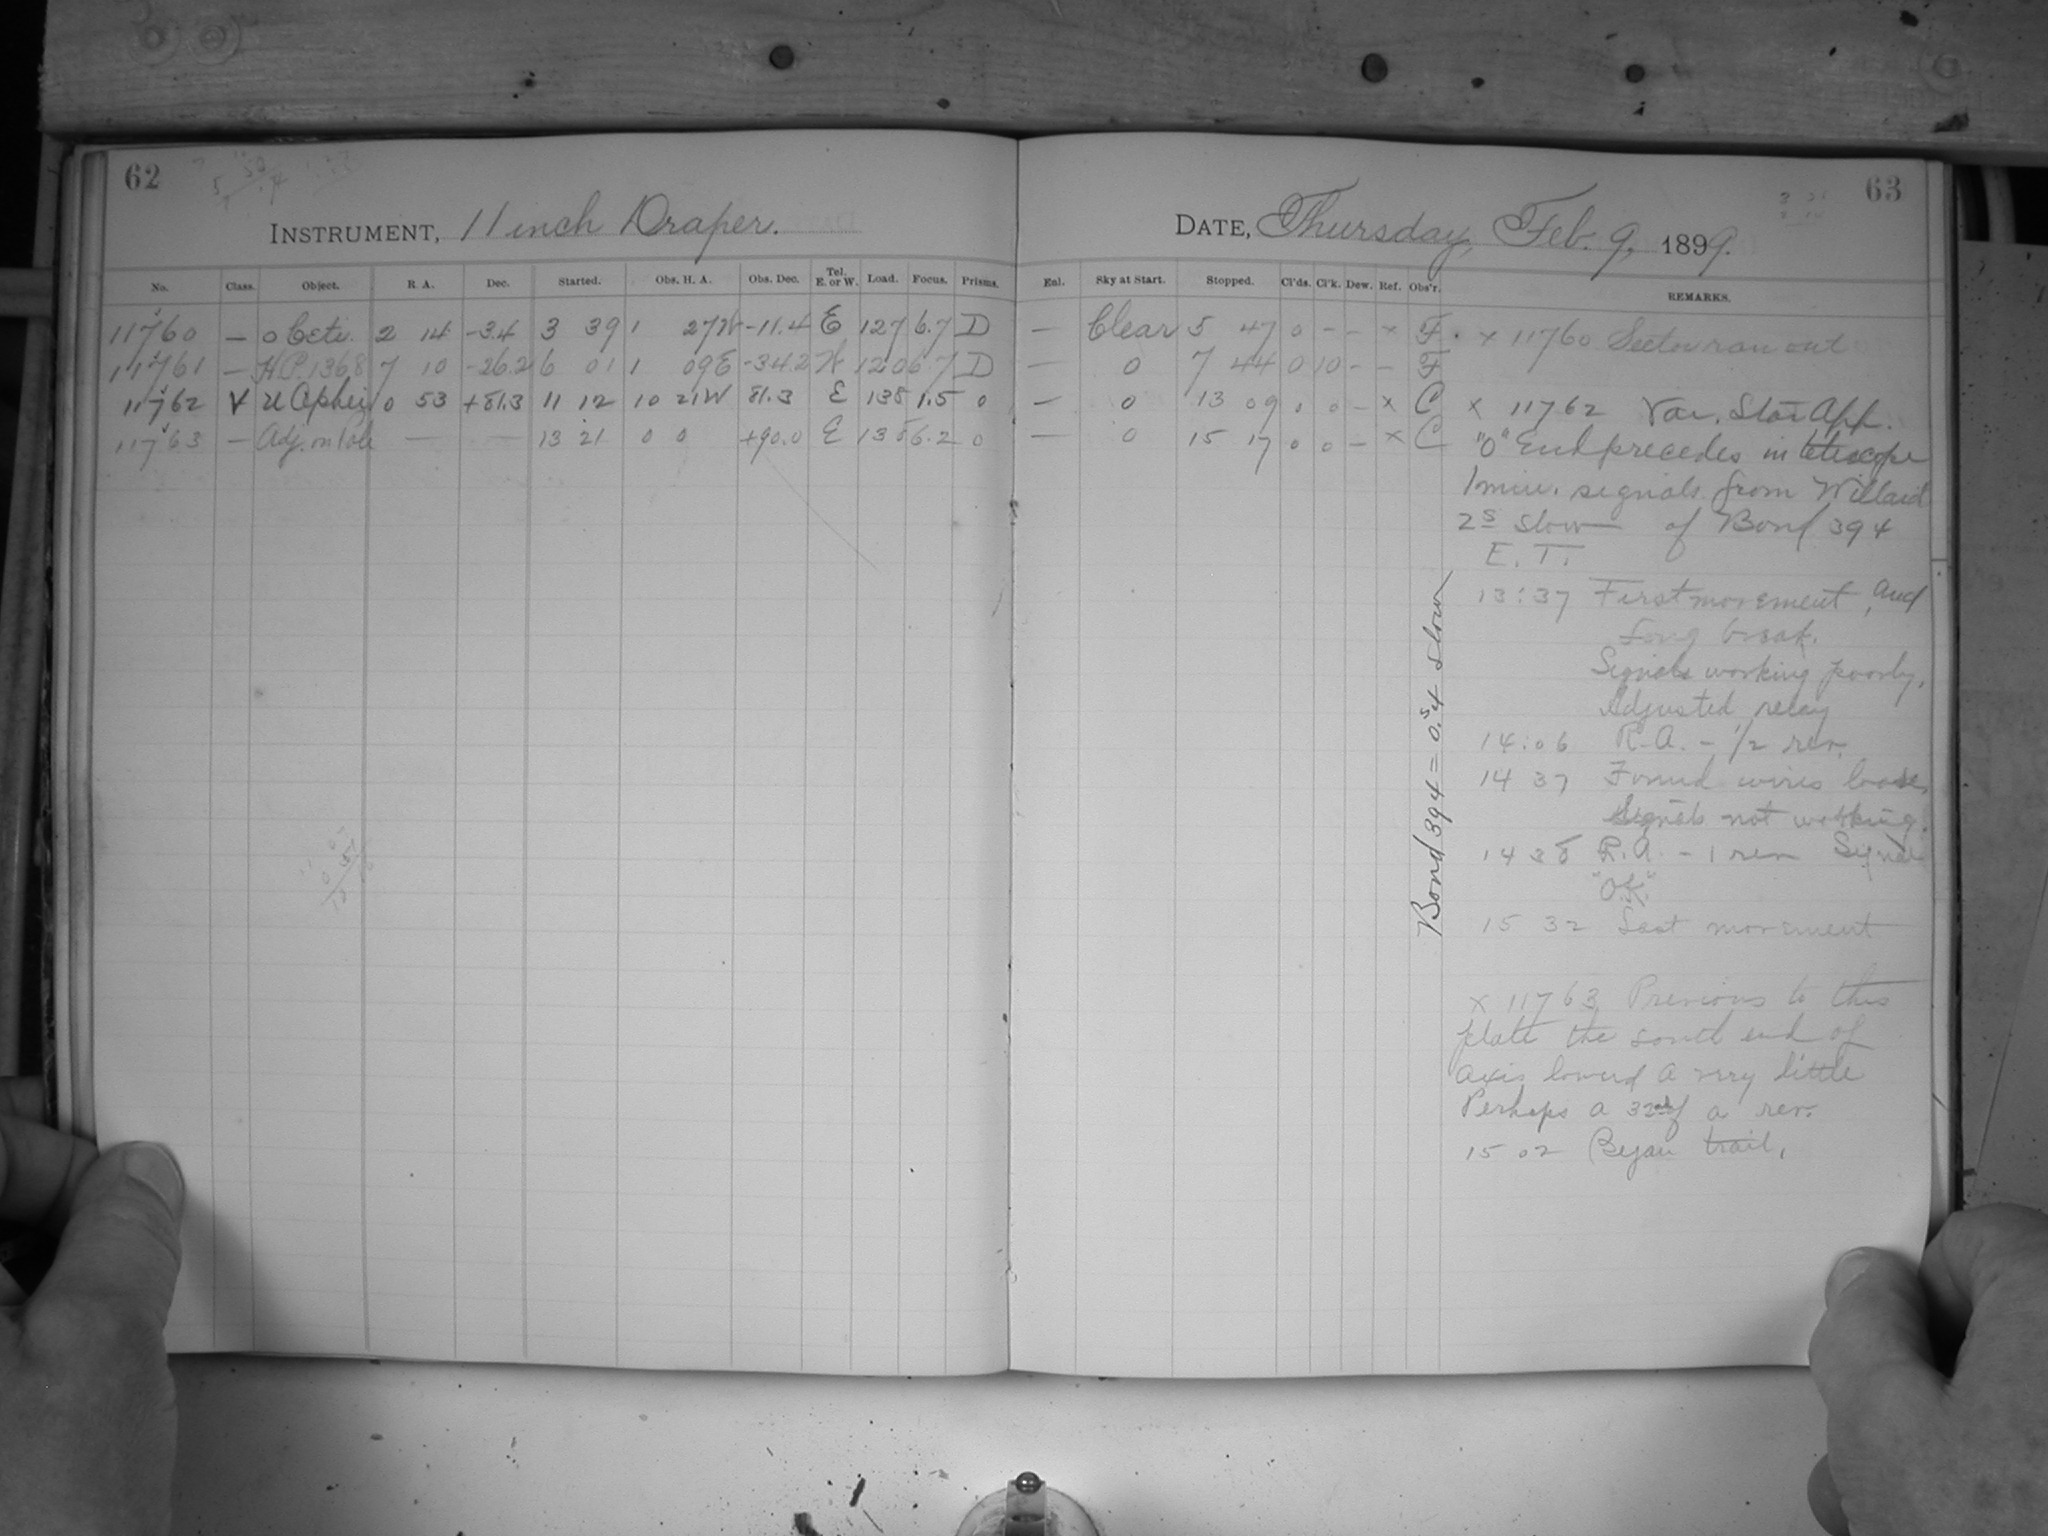 62
INSTRUMENT, 11 inch Draper.
No. Class. Object. R. A. Dec. Started. Obs. H. A. Obs. Dec. Tel. E. or W. Load. Focus. Prisms.
11760 — o Ceti. 2 14 -3.4 3 39 1 27W -11.4 E 127 6.7 D
11761 — H.P. 1368 7 10 -26.2 6 01 1 09E -34.2 W 120 6.7 D
11762 V U Cephei 0 53 +81.3 11 12 10 21W 81.3 E 138 1.5 0
11763 — Adj. on Pole — — 13 21 0 0 +90.0 E 135 6.2 0
63
DATE, Thursday, Feb. 9, 1899.
Enl. Sky at Start. Stopped. Cl'ds. Cl'k. Dew. Ref. Obs'r. REMARKS.
— Clear 5 47 0 - - x F.
— 0 7 44 0 10 - - F
— 0 13 09 0 0 - x C
— 0 15 17 0 0 - x C
x 11760 Sector ran out
x 11762 Var. Star App.
"O" End precedes in telescope
1 min. signals from Willard
2s slow of Bond 394
E. T.
13:37 First movement, and
Long break.
Signals working poorly,
Adjusted relay
14:06 R.A. - 1/2 rev.
14 37 Found wires loose,
Signals not working.
14 38 R.A. - 1 rev Signal
"O.K."
15 32 Last movement
Bond 394 = 0.s4 slow
x 11763 Previous to this
plate the south end of
axis lowerd a very little
Perhaps a 32nd of a rev.
15 02 Began trail,